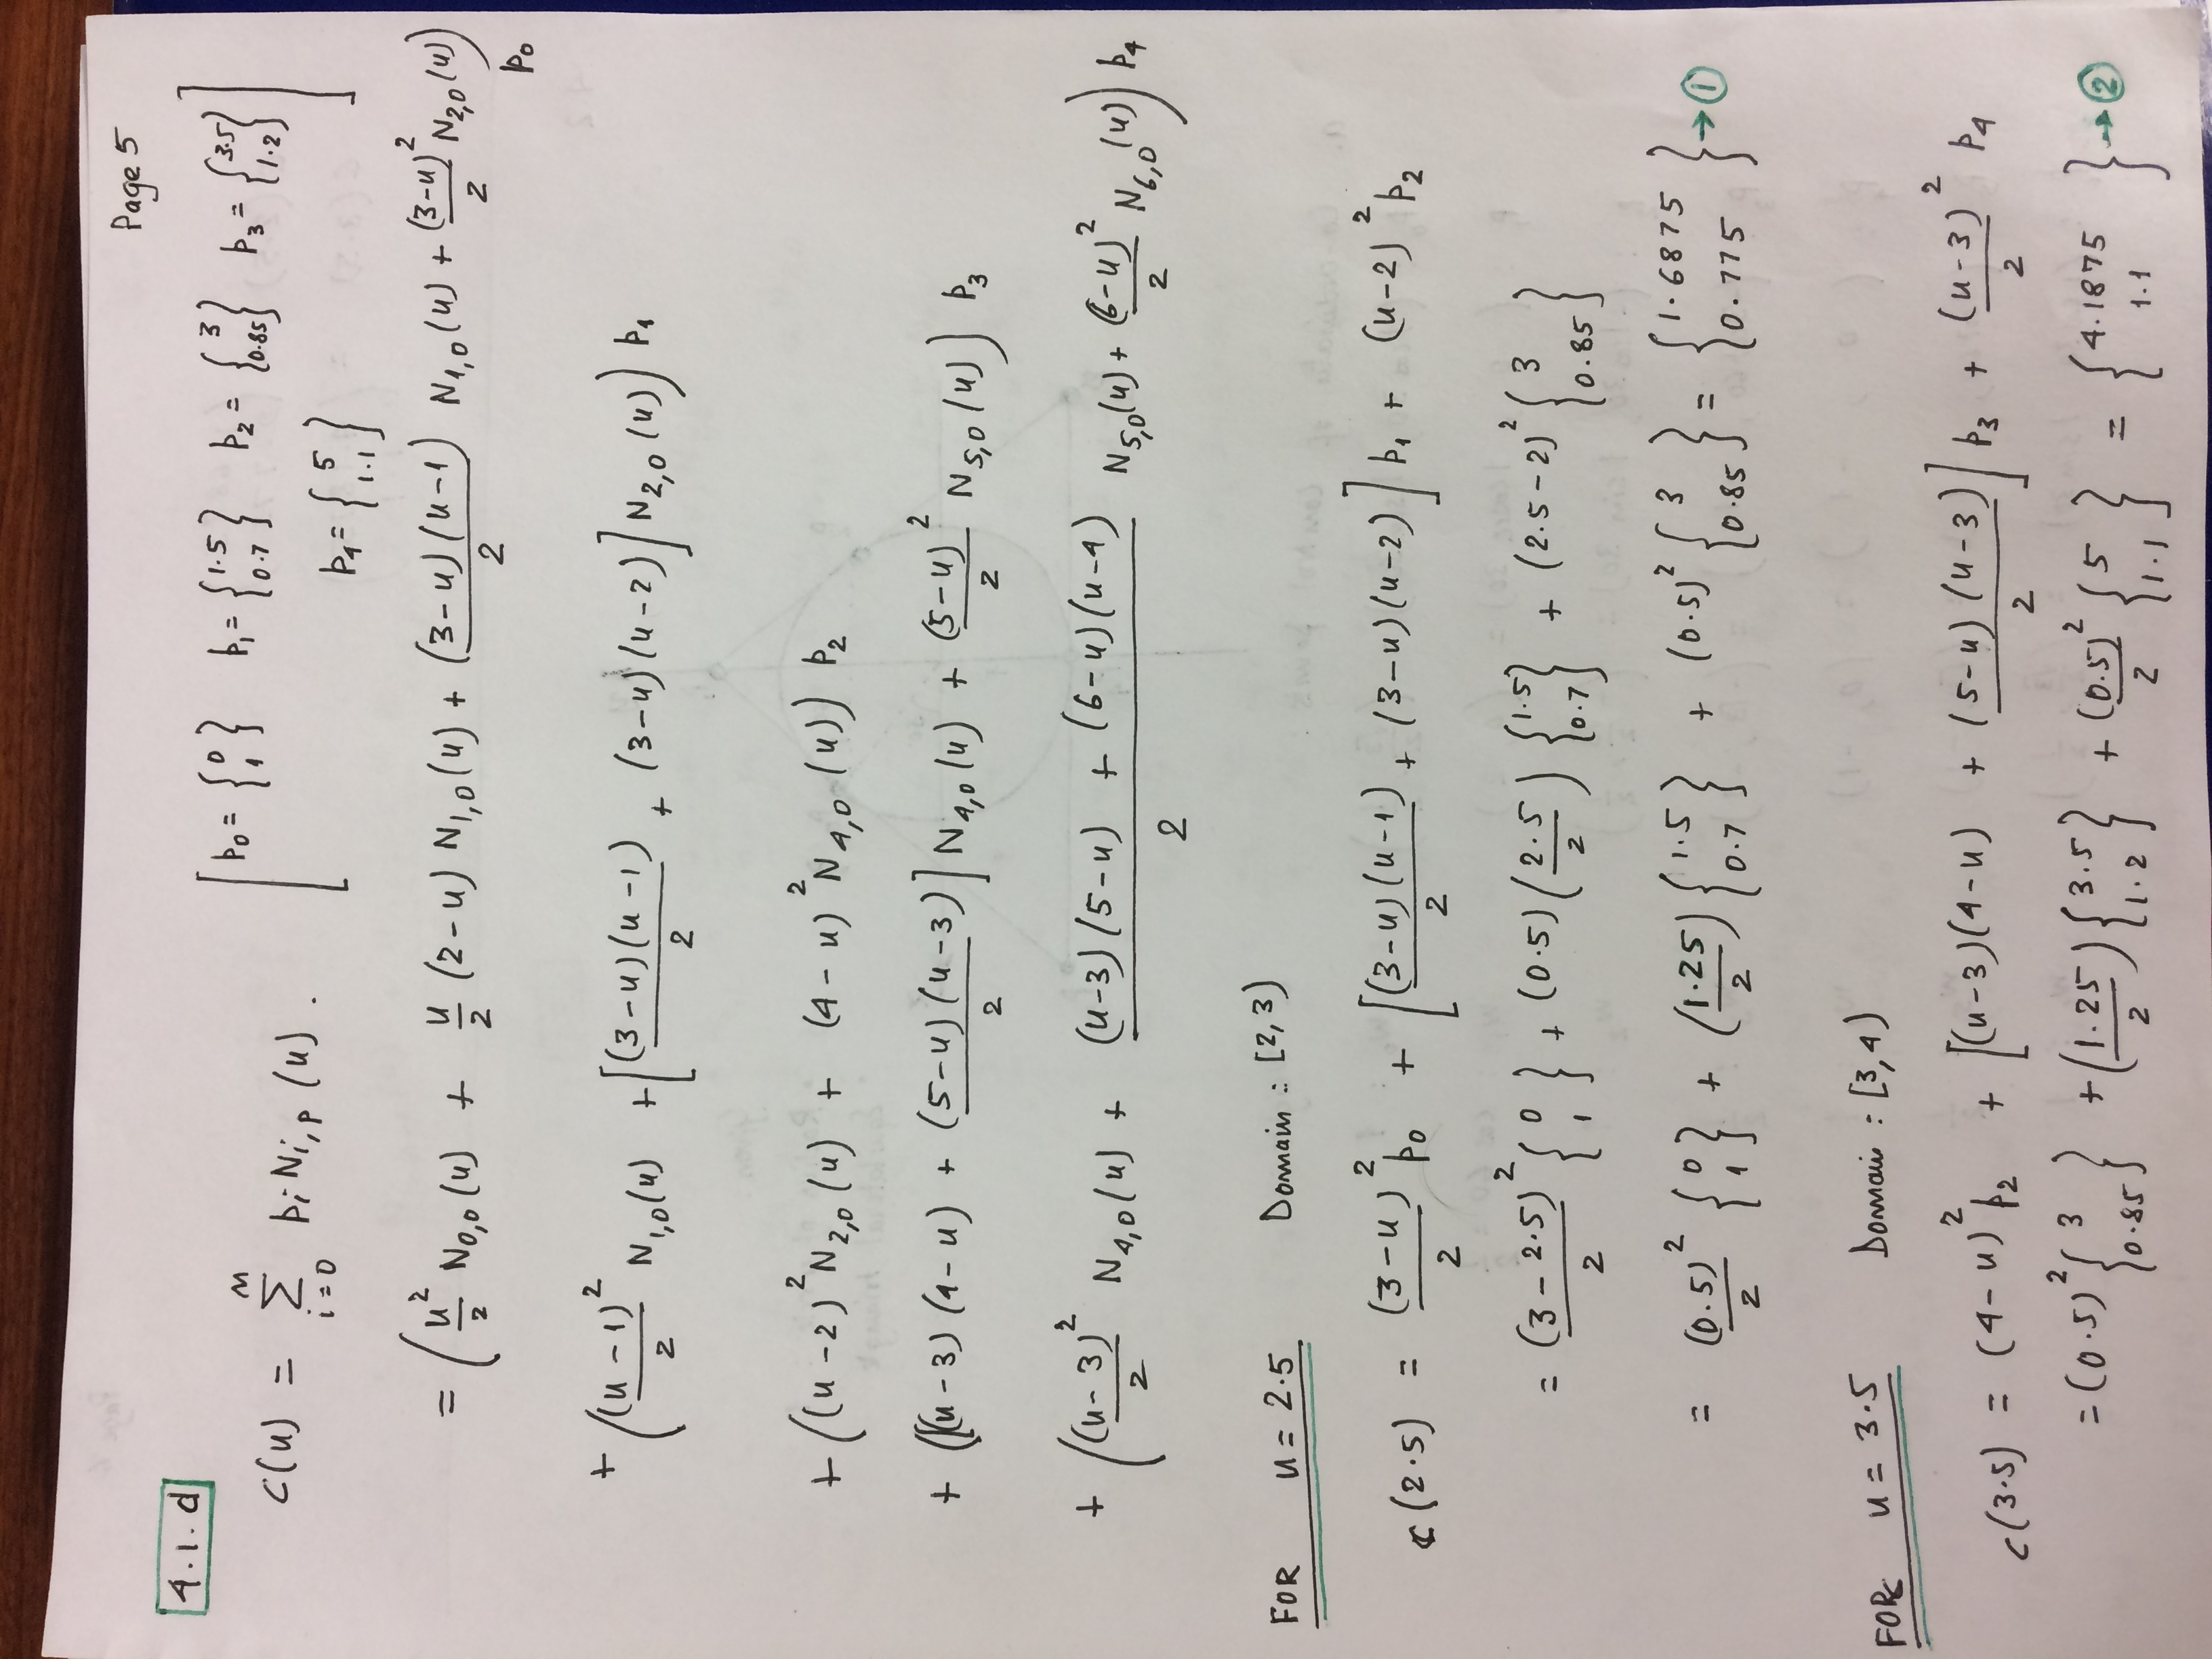 Page 5
4.1.d
[p₀ = {0 1} p₁ = {1.5 0.7} p₂ = {3 0.85} p₃ = {3.5 1.2}
p₄ = {5 1.1}]
c(u) = Σ_{i=0}^{n} pᵢ N_{i,p}(u).
= (u²/2 N_{0,0}(u) + u/2 (2-u) N_{1,0}(u) + (3-u)(u-1)/2 N_{1,0}(u) + (3-u)²/2 N_{2,0}(u)) p₀
+ ((u-1)²/2 N_{1,0}(u) + [(3-u)(u-1)/2 + (3-u)(u-2)] N_{2,0}(u)) p₁
+ ((u-2)² N_{2,0}(u) + (4-u)² N_{4,0}(u)) p₂
+ ([(u-3)(4-u) + (5-u)(u-3)/2] N_{4,0}(u) + (5-u)²/2 N_{5,0}(u)) p₃
+ ((u-3)²/2 N_{4,0}(u) + (u-3)(5-u) + (6-u)(u-4)/2 N_{5,0}(u) + (6-u)²/2 N_{6,0}(u)) p₄
FOR u = 2.5 Domain : [2,3)
c(2.5) = (3-u)²/2 p₀ + [(3-u)(u-1)/2 + (3-u)(u-2)] p₁ + (u-2)² p₂
= (3-2.5)²/2 {0 1} + (0.5)(2.5/2) {1.5 0.7} + (2.5-2)² {3 0.85}
= (0.5)²/2 {0 1} + (1.25/2) {1.5 0.7} + (0.5)² {3 0.85} = {1.6875 0.775} → ①
FOR u = 3.5 Domain : [3,4)
c(3.5) = (4-u)² p₂ + [(u-3)(4-u) + (5-u)(u-3)/2] p₃ + (u-3)²/2 p₄
= (0.5)² {3 0.85} + (1.25/2) {3.5 1.2} + (0.5)²/2 {5 1.1} = {4.1875 1.1} → ②